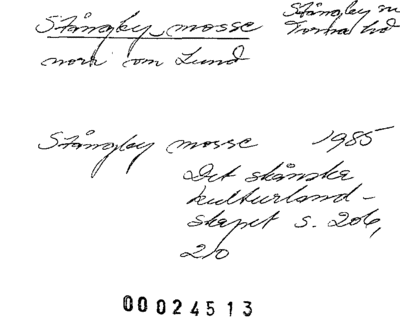 Stångby mosse
Stångby sn
Torna hd
norr om Lund
Stångby mosse 1985
Det skånska
kulturland-
skapet s. 206,
210
00024513